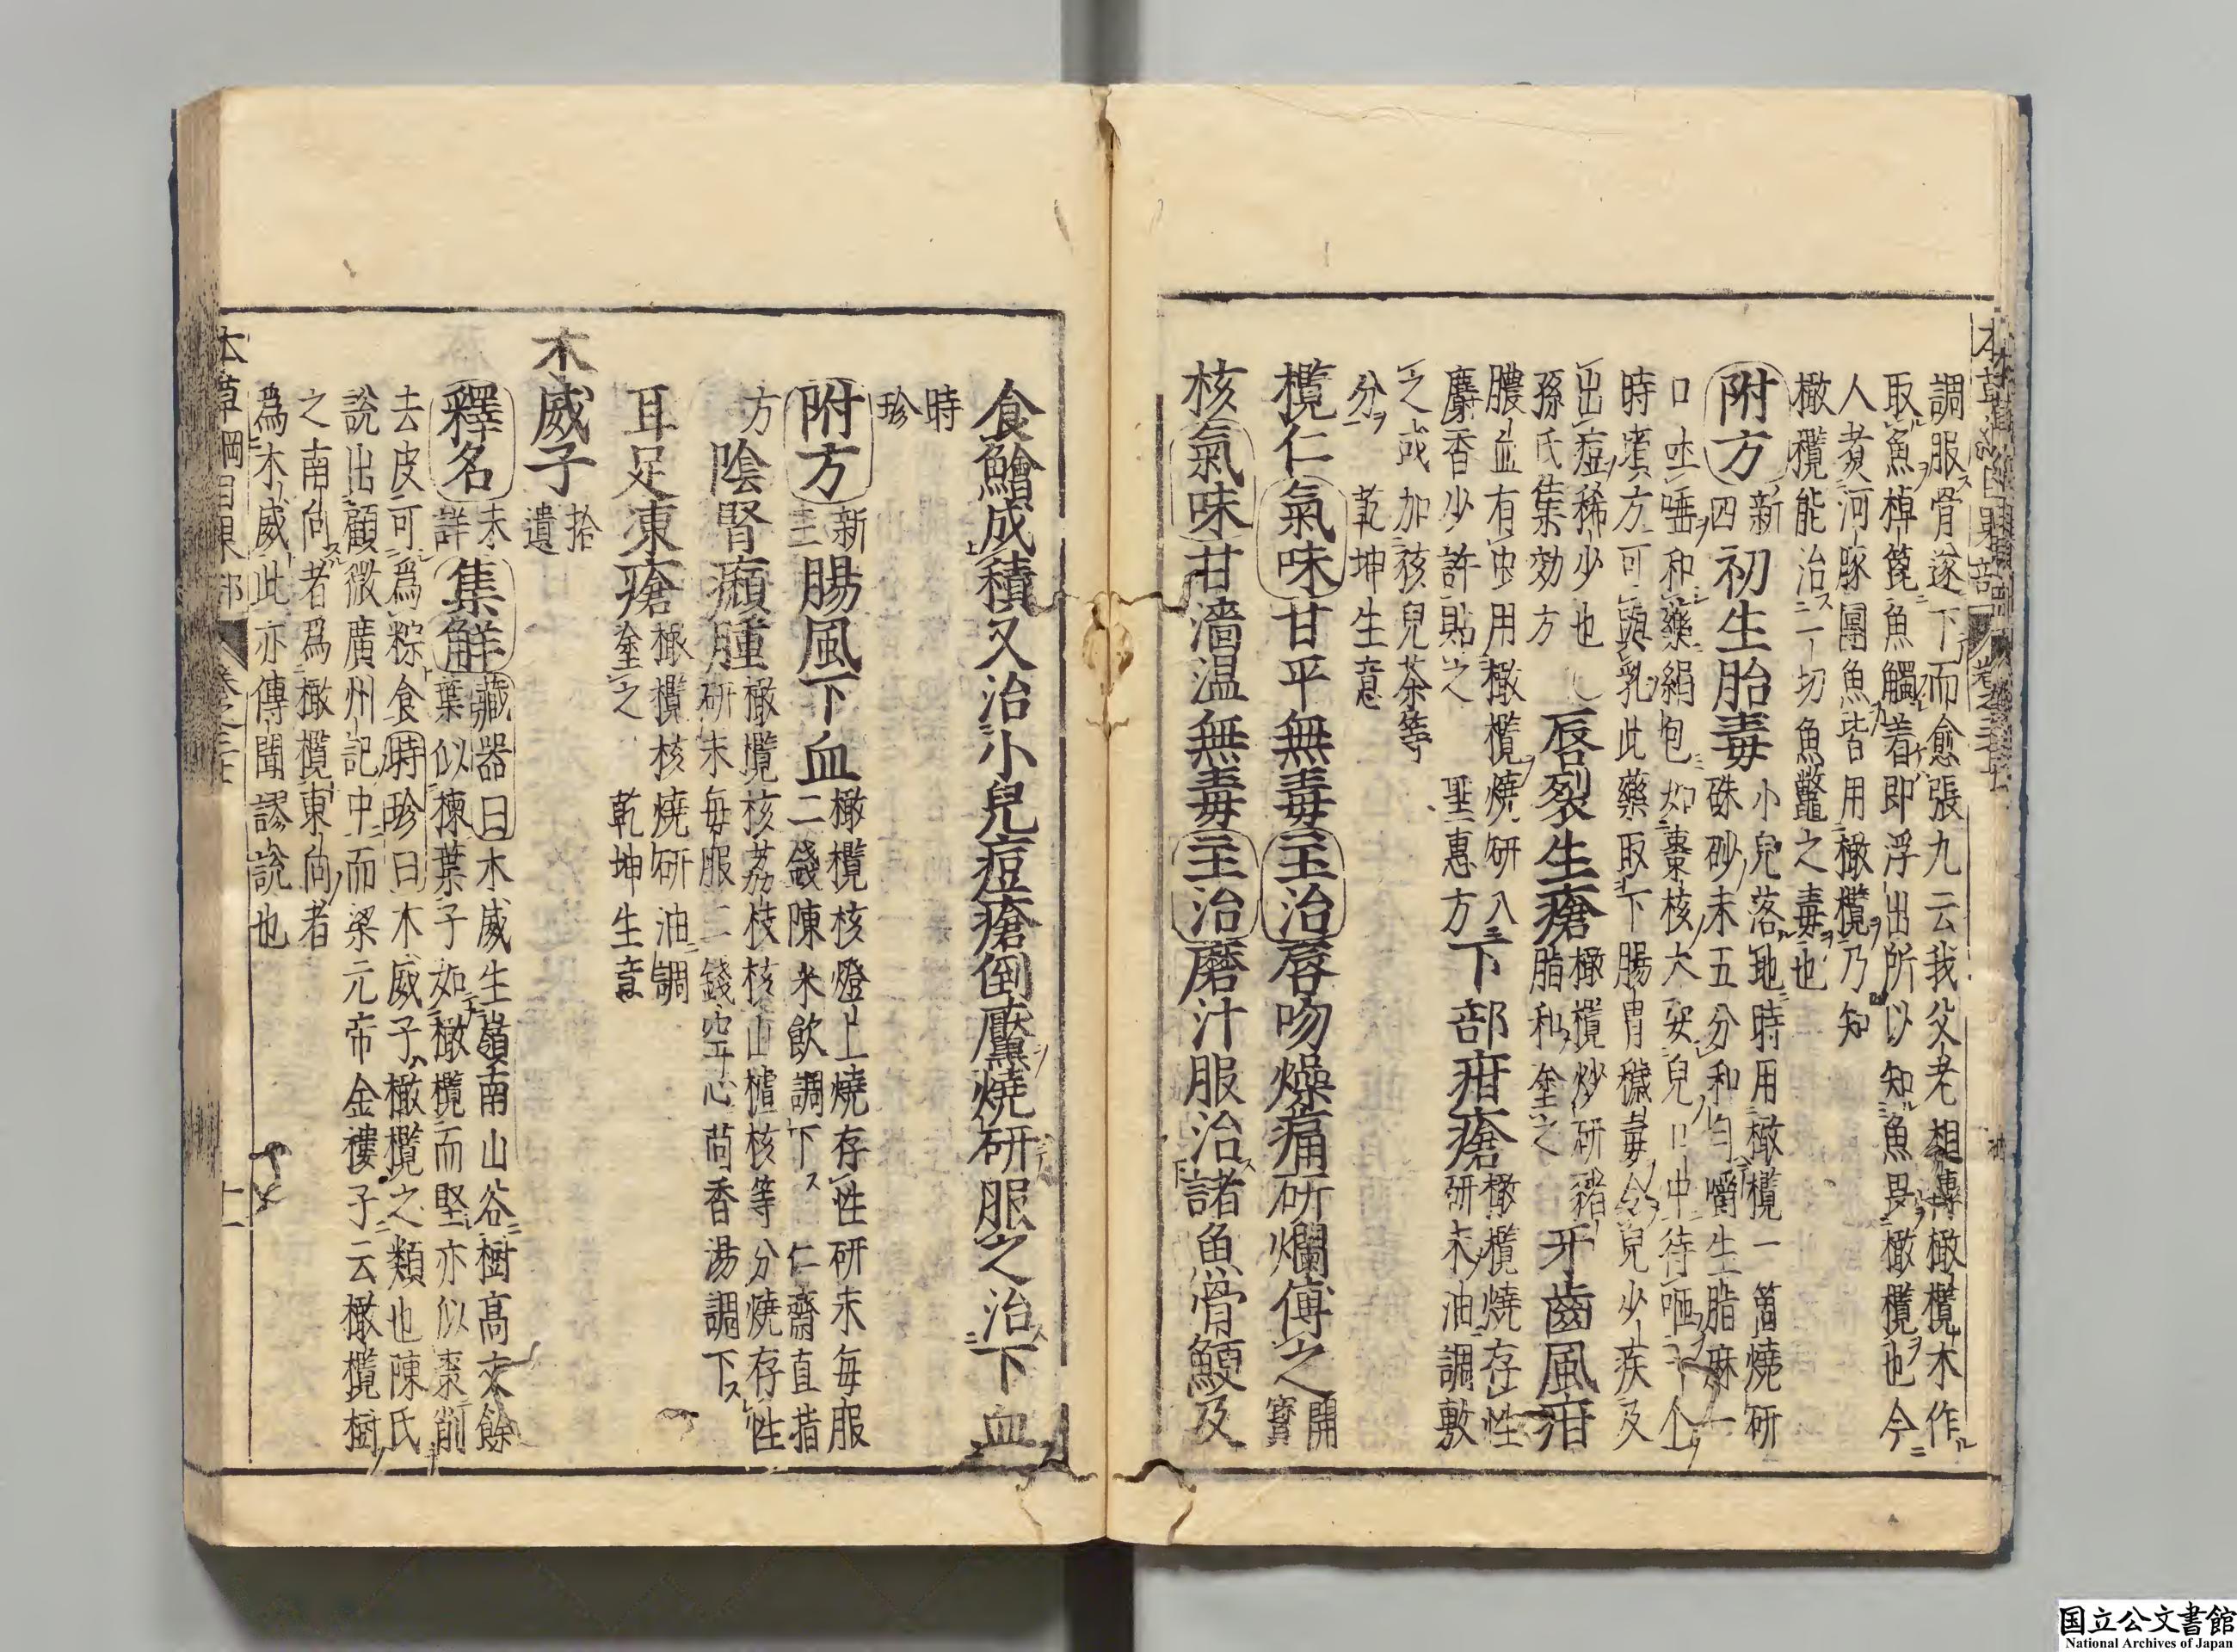 調服骨遂下而愈張九云我父老相傳橄欖木作
取魚棹篦魚觸着即浮出所以知魚畏橄欖也今
人煮河豚團魚皆用橄欖乃知
橄欖能治一切魚鼈之毒也
附方 新四 初生胎毒 小兒落地時用橄欖一箇燒研
硃砂末五分和勻嚼生脂麻一
口吐唾和藥絹包如棗核大安兒口中待咂一个
時頃方可與乳此藥取下腸胃穢毒令兒少疾及
出痘稀少也
孫氏集効方 唇裂生瘡 橄欖炒研猪
脂和塗之 牙齒風疳
膿血有虫用橄欖燒研入
麝香少許貼之 聖惠方 下部疳瘡 橄欖燒存性
研末油調敷
之或加孩兒茶等
分 乾坤生意
欖仁 氣味 甘平無毒 主治 唇吻燥痛研爛傅之 開寶
核 氣味 甘濇温無毒 主治 磨汁服治諸魚骨鯁及
食鱠成積又治小兒痘瘡倒黶燒研服之治下血
時珍
附方 新三 腸風下血 橄欖核燈上燒存性研末每服
二錢陳米飲調下 仁齋直指
方 陰腎㿗腫 橄欖核荔枝核山樝核等分燒存性
研末每服二錢空心茴香湯調下
耳足凍瘡 橄欖核燒研油調
塗之 乾坤生意
木威子 拾遺
釋名 未詳 集觧 藏器曰木威生嶺南山谷樹高丈餘
葉似楝葉子如橄欖而堅亦似棗削
去皮可爲粽食時珍曰木威子橄欖之類也陳氏
說出顧微廣州記中而梁元帝金樓子云橄欖樹
之南向者爲橄欖東向者
爲木威此亦傳聞謬說也
本草綱目果部 十一
国立公文書館
National Archives of Japan